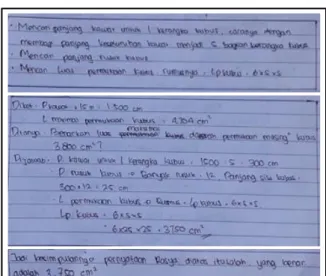 - Mencari panjang kawat untuk 1 kerangka kubus, caranya dengan
membagi panjang keseluruhan kawat menjadi 5 bagian kerangka kubus
- Mencari panjang rusuk kubus
- Mencari luas permukaan kubus, rumusnya : Lp kubus = 6 x s x s
Diket : P kawat = 1.500 cm
L permukaan kubus = cm²
Ditanya : Benarkah luas maksimal permukaan masing²
3.800 cm² ?
Dijawab : P. kawat untuk 1 kerangka kubus = 1500 : 5 = 300 cm
P rusuk kubus = Banyak rusuk = 12. Panjang sisi kubus =
300 : 12 = 25 cm
L permukaan kubus = Rumus = Lp kubus = 6 x s x s
Lp kubus = 6 x s x s
= 6 x 25 x 25 = 3750 cm²
Jadi kesimpulannya pernyataan Rasya diatas yang benar
adalah 3.750 cm²